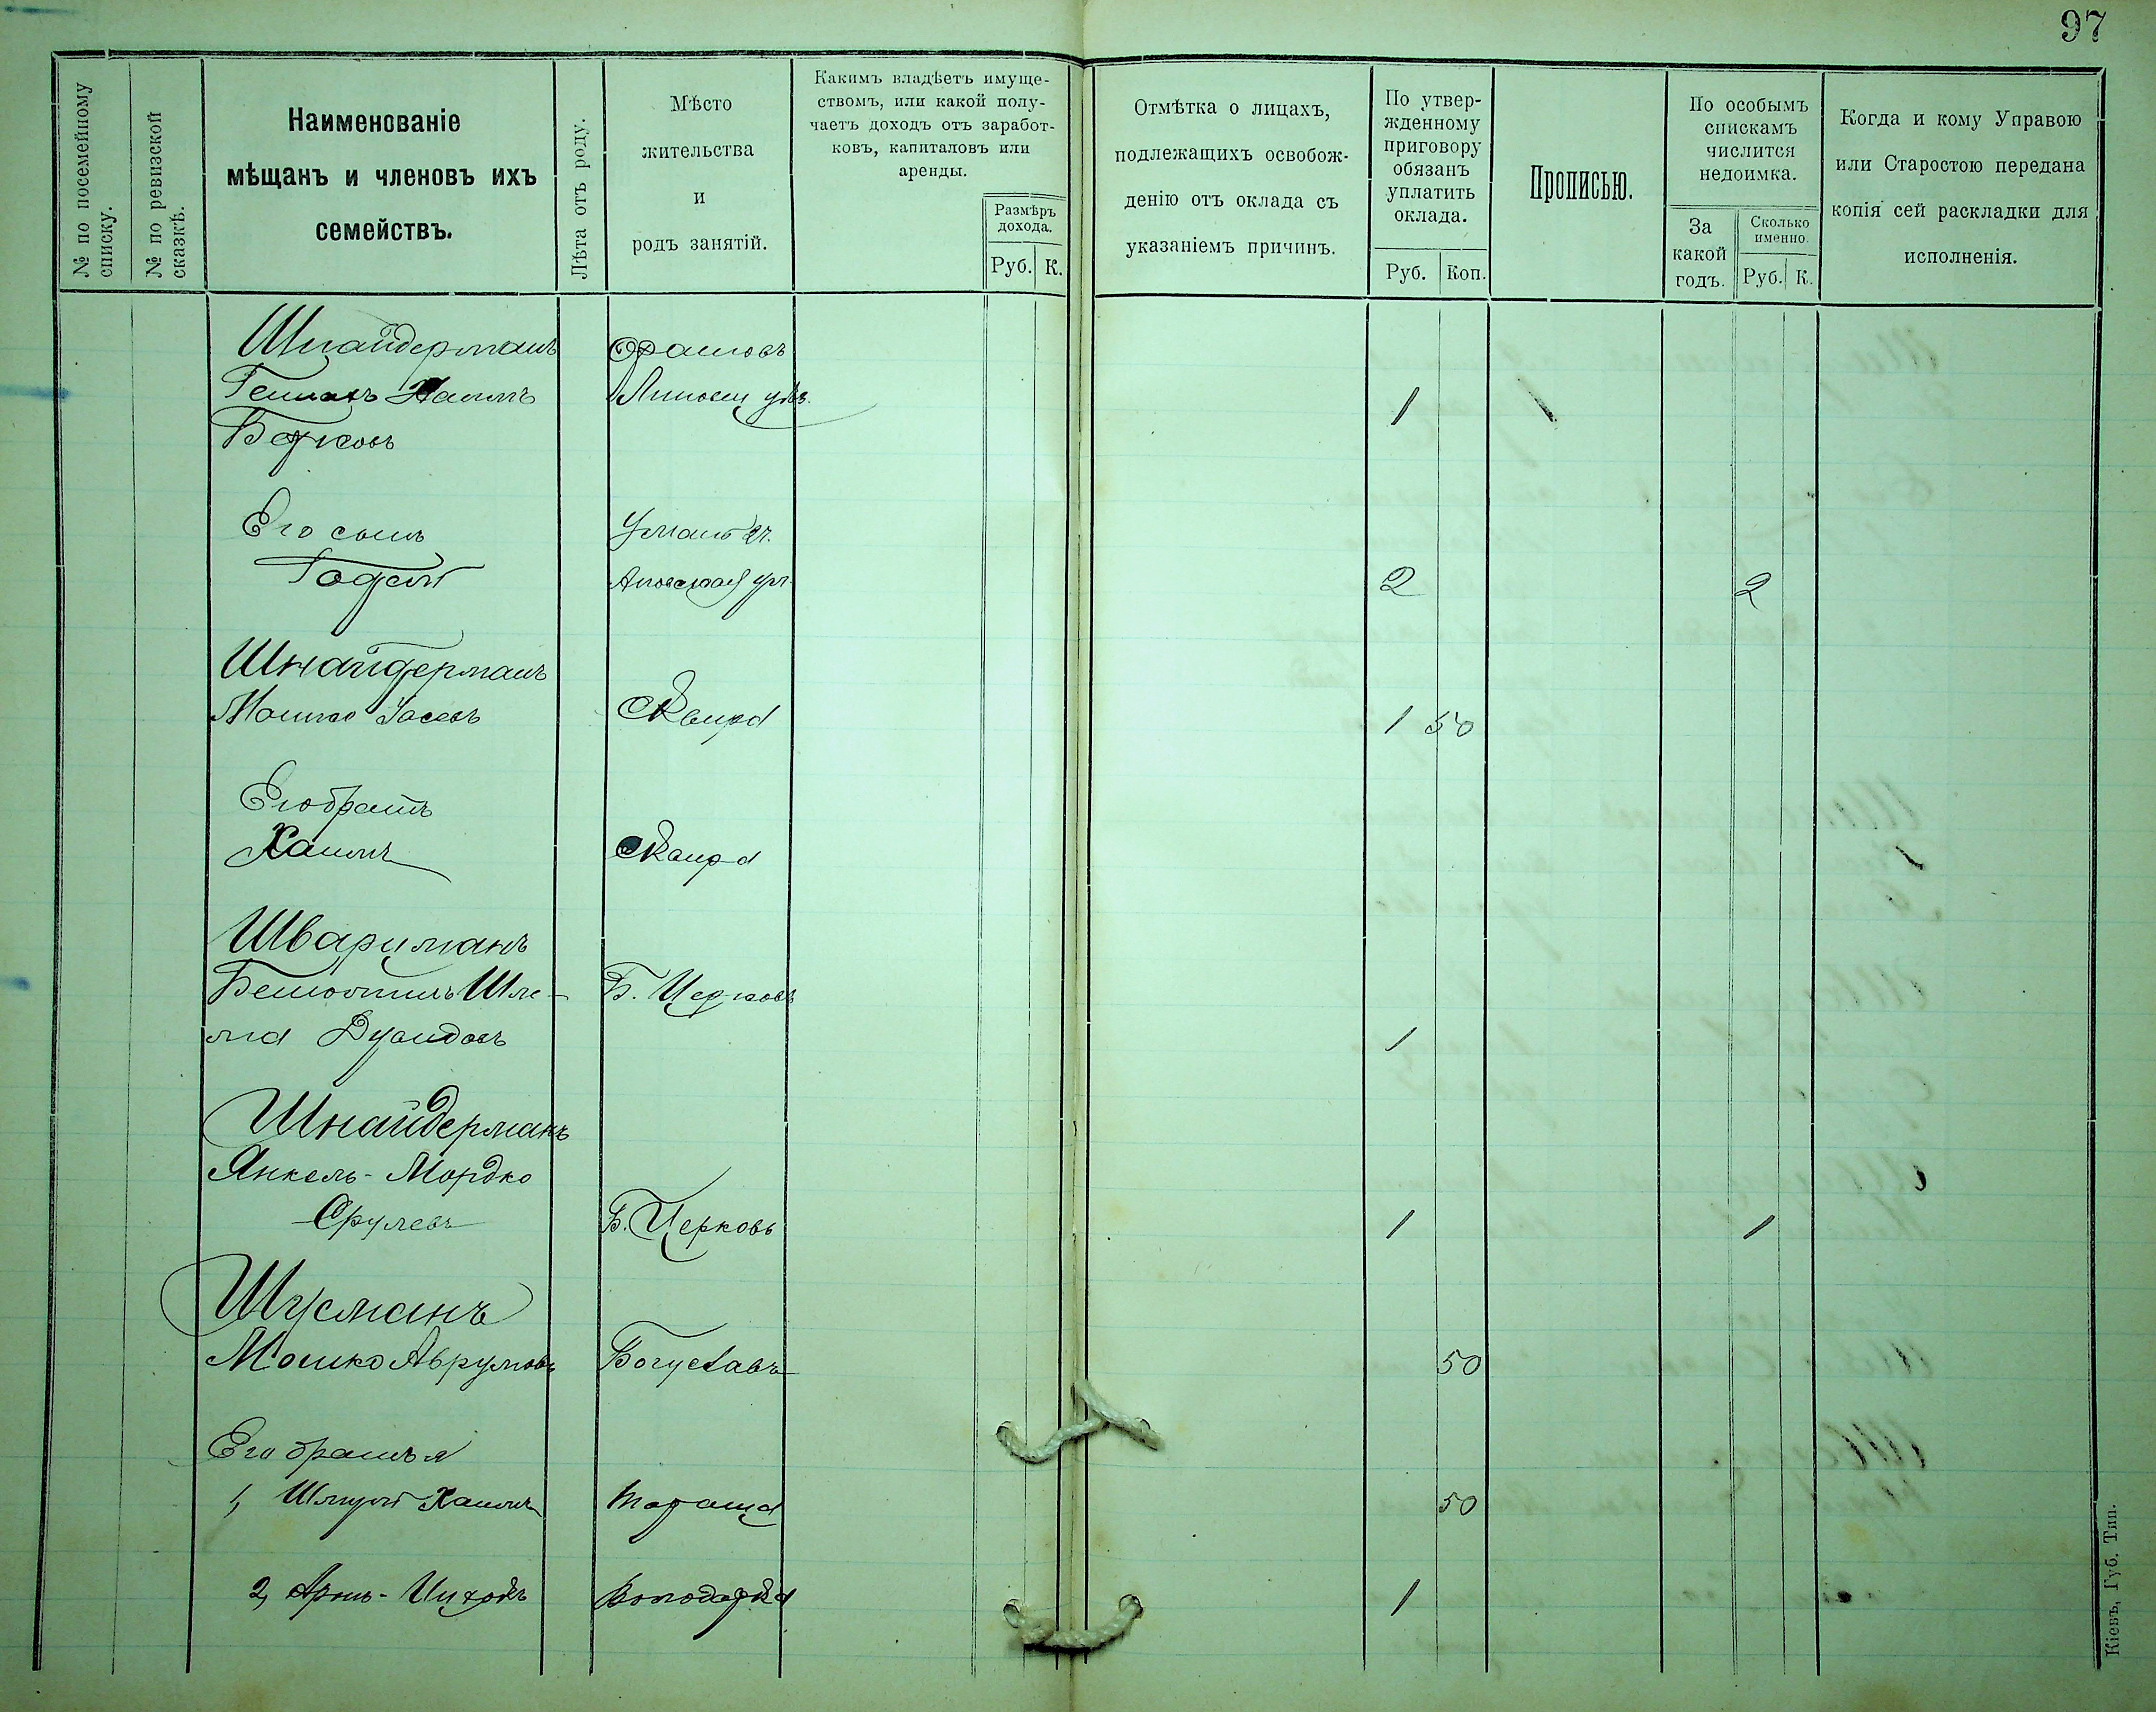 97
№ по посемейному
списку.
№ по ревизской
сказкѣ.
Наименованіе
мѣщанъ и членовъ ихъ
семействъ.
Лѣта отъ роду.
Мѣсто
жительства
и
родъ занятій.
Какимъ владѣетъ имуще-
ствомъ, или какой полу-
чаетъ доходъ отъ заработ-
ковъ, капиталовъ или
аренды.
Размѣръ
дохода.
Руб. К.
Отмѣтка о лицахъ,
подлежащихъ освобож-
денію отъ оклада съ
указаніемъ причинъ.
По утвер-
жденному
приговору
обязанъ
уплатить
оклада.
Руб. Коп.
Прописью.
По особымъ
спискамъ
числится
недоимка.
За
какой
годъ.
Сколько
именно.
Руб. К.
Когда и кому Управою
или Старостою передана
копія сей раскладки для
исполненія.
Шнайдерманъ Оратовъ
Хаимъ Липовец уѣз. 1
Берковъ
Его сынъ Умань
2 2
Шнайдерманъ
Мошко Сквира 1 50
Его братъ
Хаимъ Сквира
Шварцманъ
Шле- Б. Церковь
ма 1
Шнайдерманъ
Янкель-Мордко
Срулевъ Б. Церковь 1 1
Шусманъ
Мошко Аврумовъ Богуславъ 50
Его братья
1, Шмуль Хаимъ Тараща 50
2, Аронъ-Ицхокъ Володарка 1
Кіевъ, Губ. Тип.